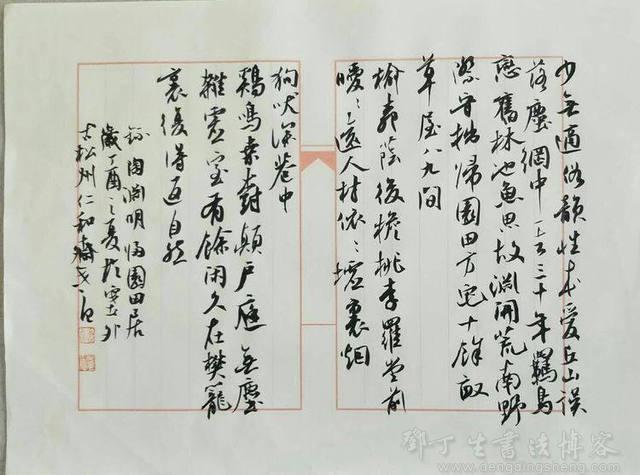 少無適俗韻性本愛丘山误
落塵網中一去三十年羈鳥
戀舊林池魚思故淵開荒南野
際守拙歸園田方宅十餘畝
草屋八九間
榆柳蔭後檐桃李羅堂前
曖〻遠人村依〻墟裏烟
狗吠深巷中
鷄鳴桑樹顛戶庭無塵
雜虛室有餘閑久在樊籠
裏復得返自然
錄陶淵明歸園田居
歲丁酉之夏於
古松州仁和
鄧丁生書法博客
www.dengdingsheng.com